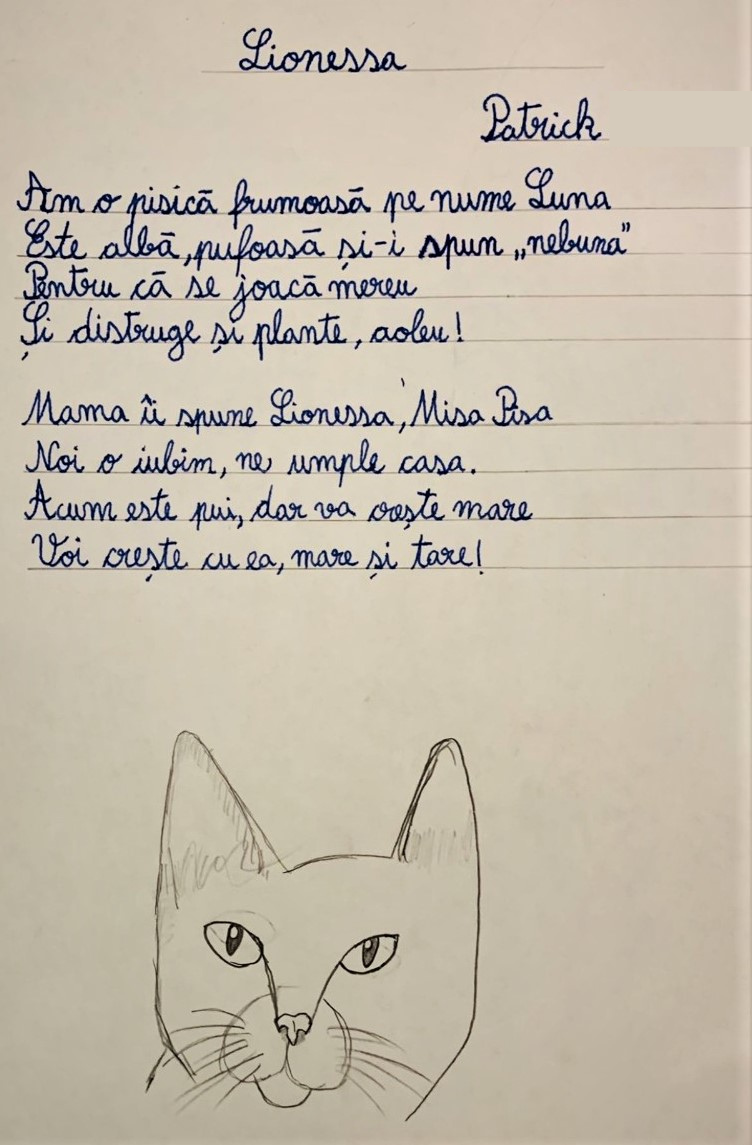 Lionessa
Patrick
Am o pisică frumoasă pe nume Luna
Este albă, pufoasă și-i spun „nebuna”
Pentru că se joacă mereu
Și distruge și plante, aoleu!
Mama îi spune Lionessa, Misa Pisa
Noi o iubim, ne umple casa.
Acum este pui, dar va crește mare
Voi crește cu ea, mare și tare!